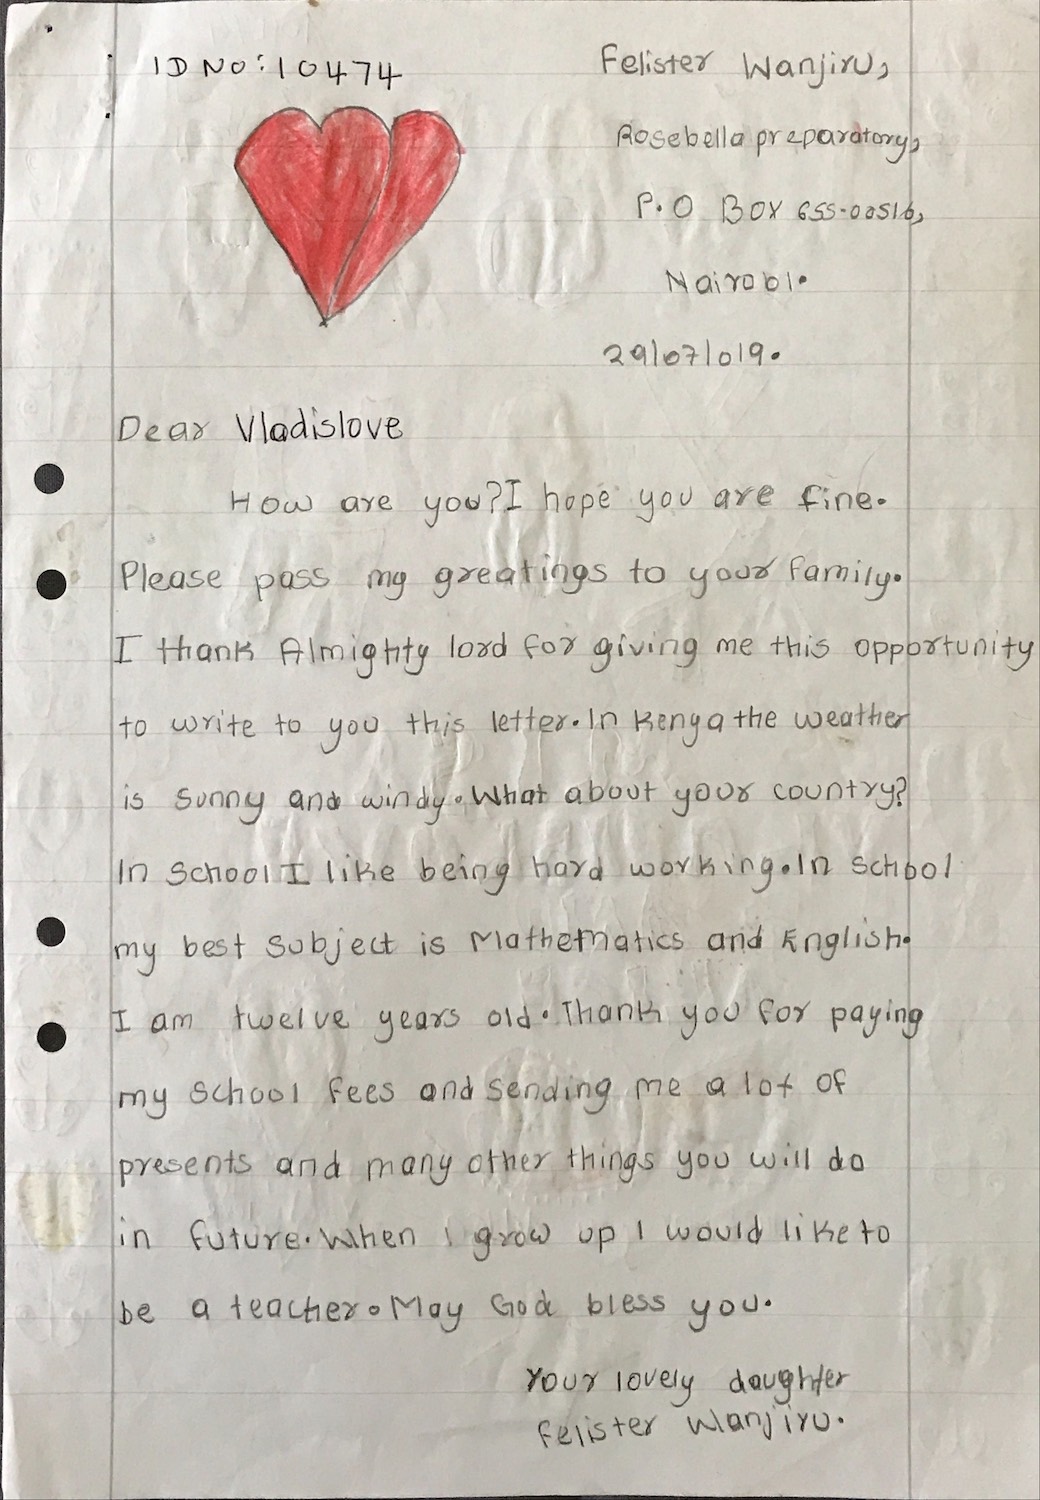 ID No: 10474
Felister Wanjiru,
Rosebella preparatory,
P.O BOX 655-00516,
Nairobi.
29/07/019.
Dear Vladislove
How are you? I hope you are fine.
Please pass my greatings to your family.
I thank Almighty lord for giving me this opportunity
to write to you this letter. In Kenya the weather
is sunny and windy. What about your country?
In school I like being hard working. In school
my best subject is Mathematics and English.
I am twelve years old. Thank you for paying
my school fees and sending me a lot of
presents and many other things you will do
in future. When I grow up I would like to
be a teacher. May God bless you.
Your lovely daughter
Felister Wanjiru.